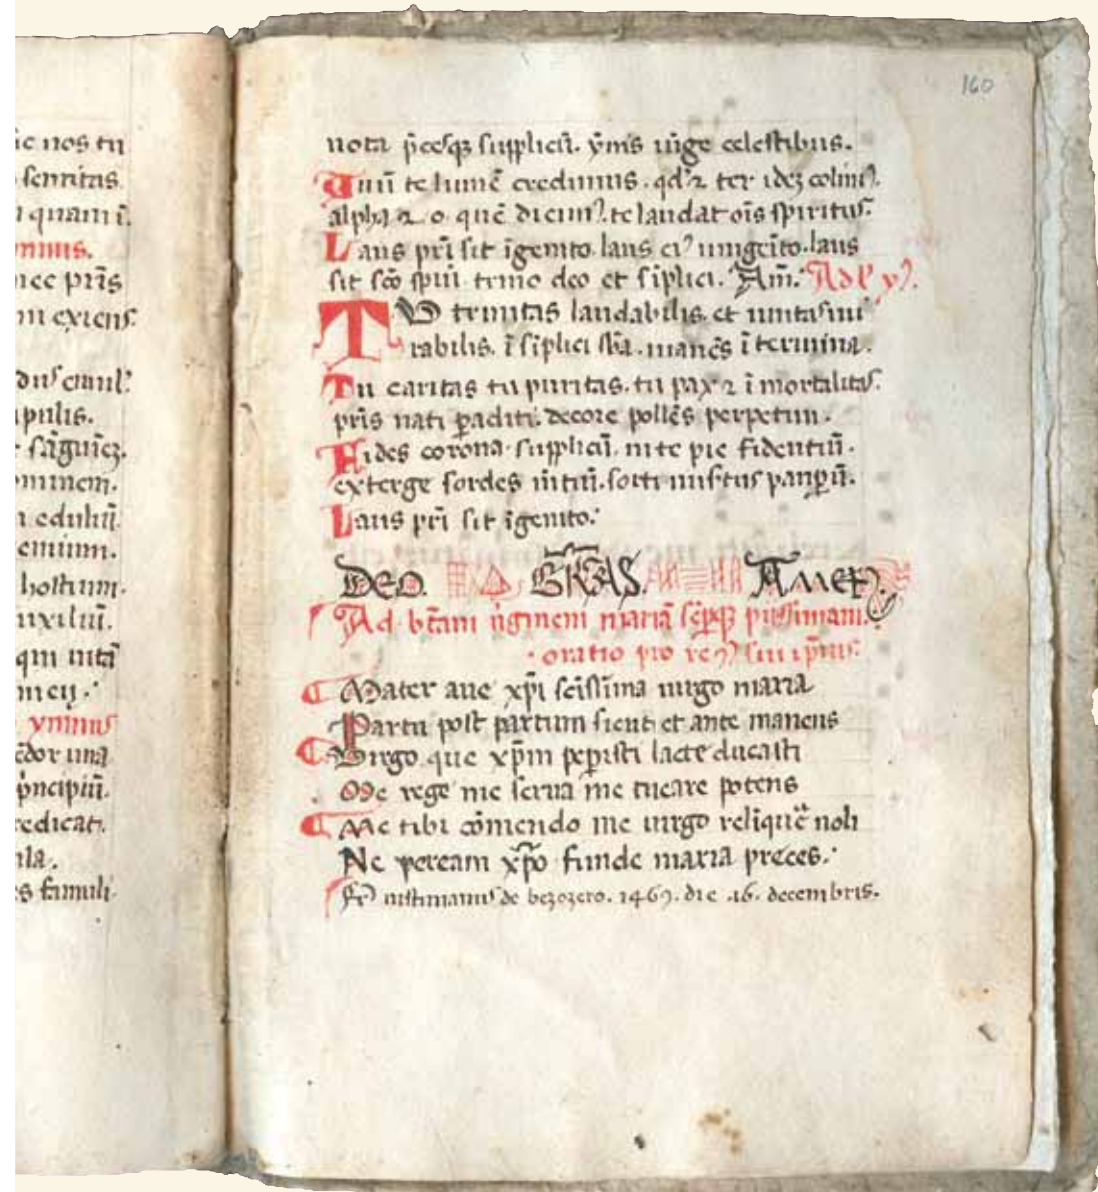 160
ic nos tu
sentitas
quam ī.
ymnus.
nec pr̄is
m exiens
pulis.
sāguiēꝫ.
ominem.
eduliū.
emium.
hostium.
uxiliū.
qui uitā
ymnus
una
pͥncipiū.
redicat.
ula.
famuli
uota p̄cesqꝫ suppliciū. ymis iūge celestibus.
Unū te lumē credimus. qd̄ ⁊ ter ideꝫ colimꝰ.
alpha ⁊ o quē dicimꝰ. te laudat oīs spiritus.
Laus pr̄i sit īgenito. laus eiꝰ unigēito. laus
sit sc̄o spūi trino deo et sīplici. Am̄.
TU trinitas laudabilis. et unitas mi
rabilis. ī sīplici manēs ī termina.
Tu caritas tu puritas. tu pax ⁊ īmortalitas.
pr̄is nati ꝑacliti. decore pollēs perpetim.
Fides corona suppliciū. in te pie fidentiū.
exterge sordes mītiū. sorti misertus pauꝑū.
Laus pr̄i sit īgenito.
DEO GR̄AS. AMEN.
Ad btām ūginem mariā sēꝑqꝫ piissimam.
oratio pro
Mater aue xp̄i scīssima uirgo maria
Partu post partum sicut et ante manens
Virgo que xp̄m peꝑisti lacte ducasti
Me rege me serua me tueare potens
Me tibi cōmendo me uirgo reliquē noli
Ne peream xp̄o funde maria preces.
Fr̄ de bezozero. 1469. die .16. decembris.